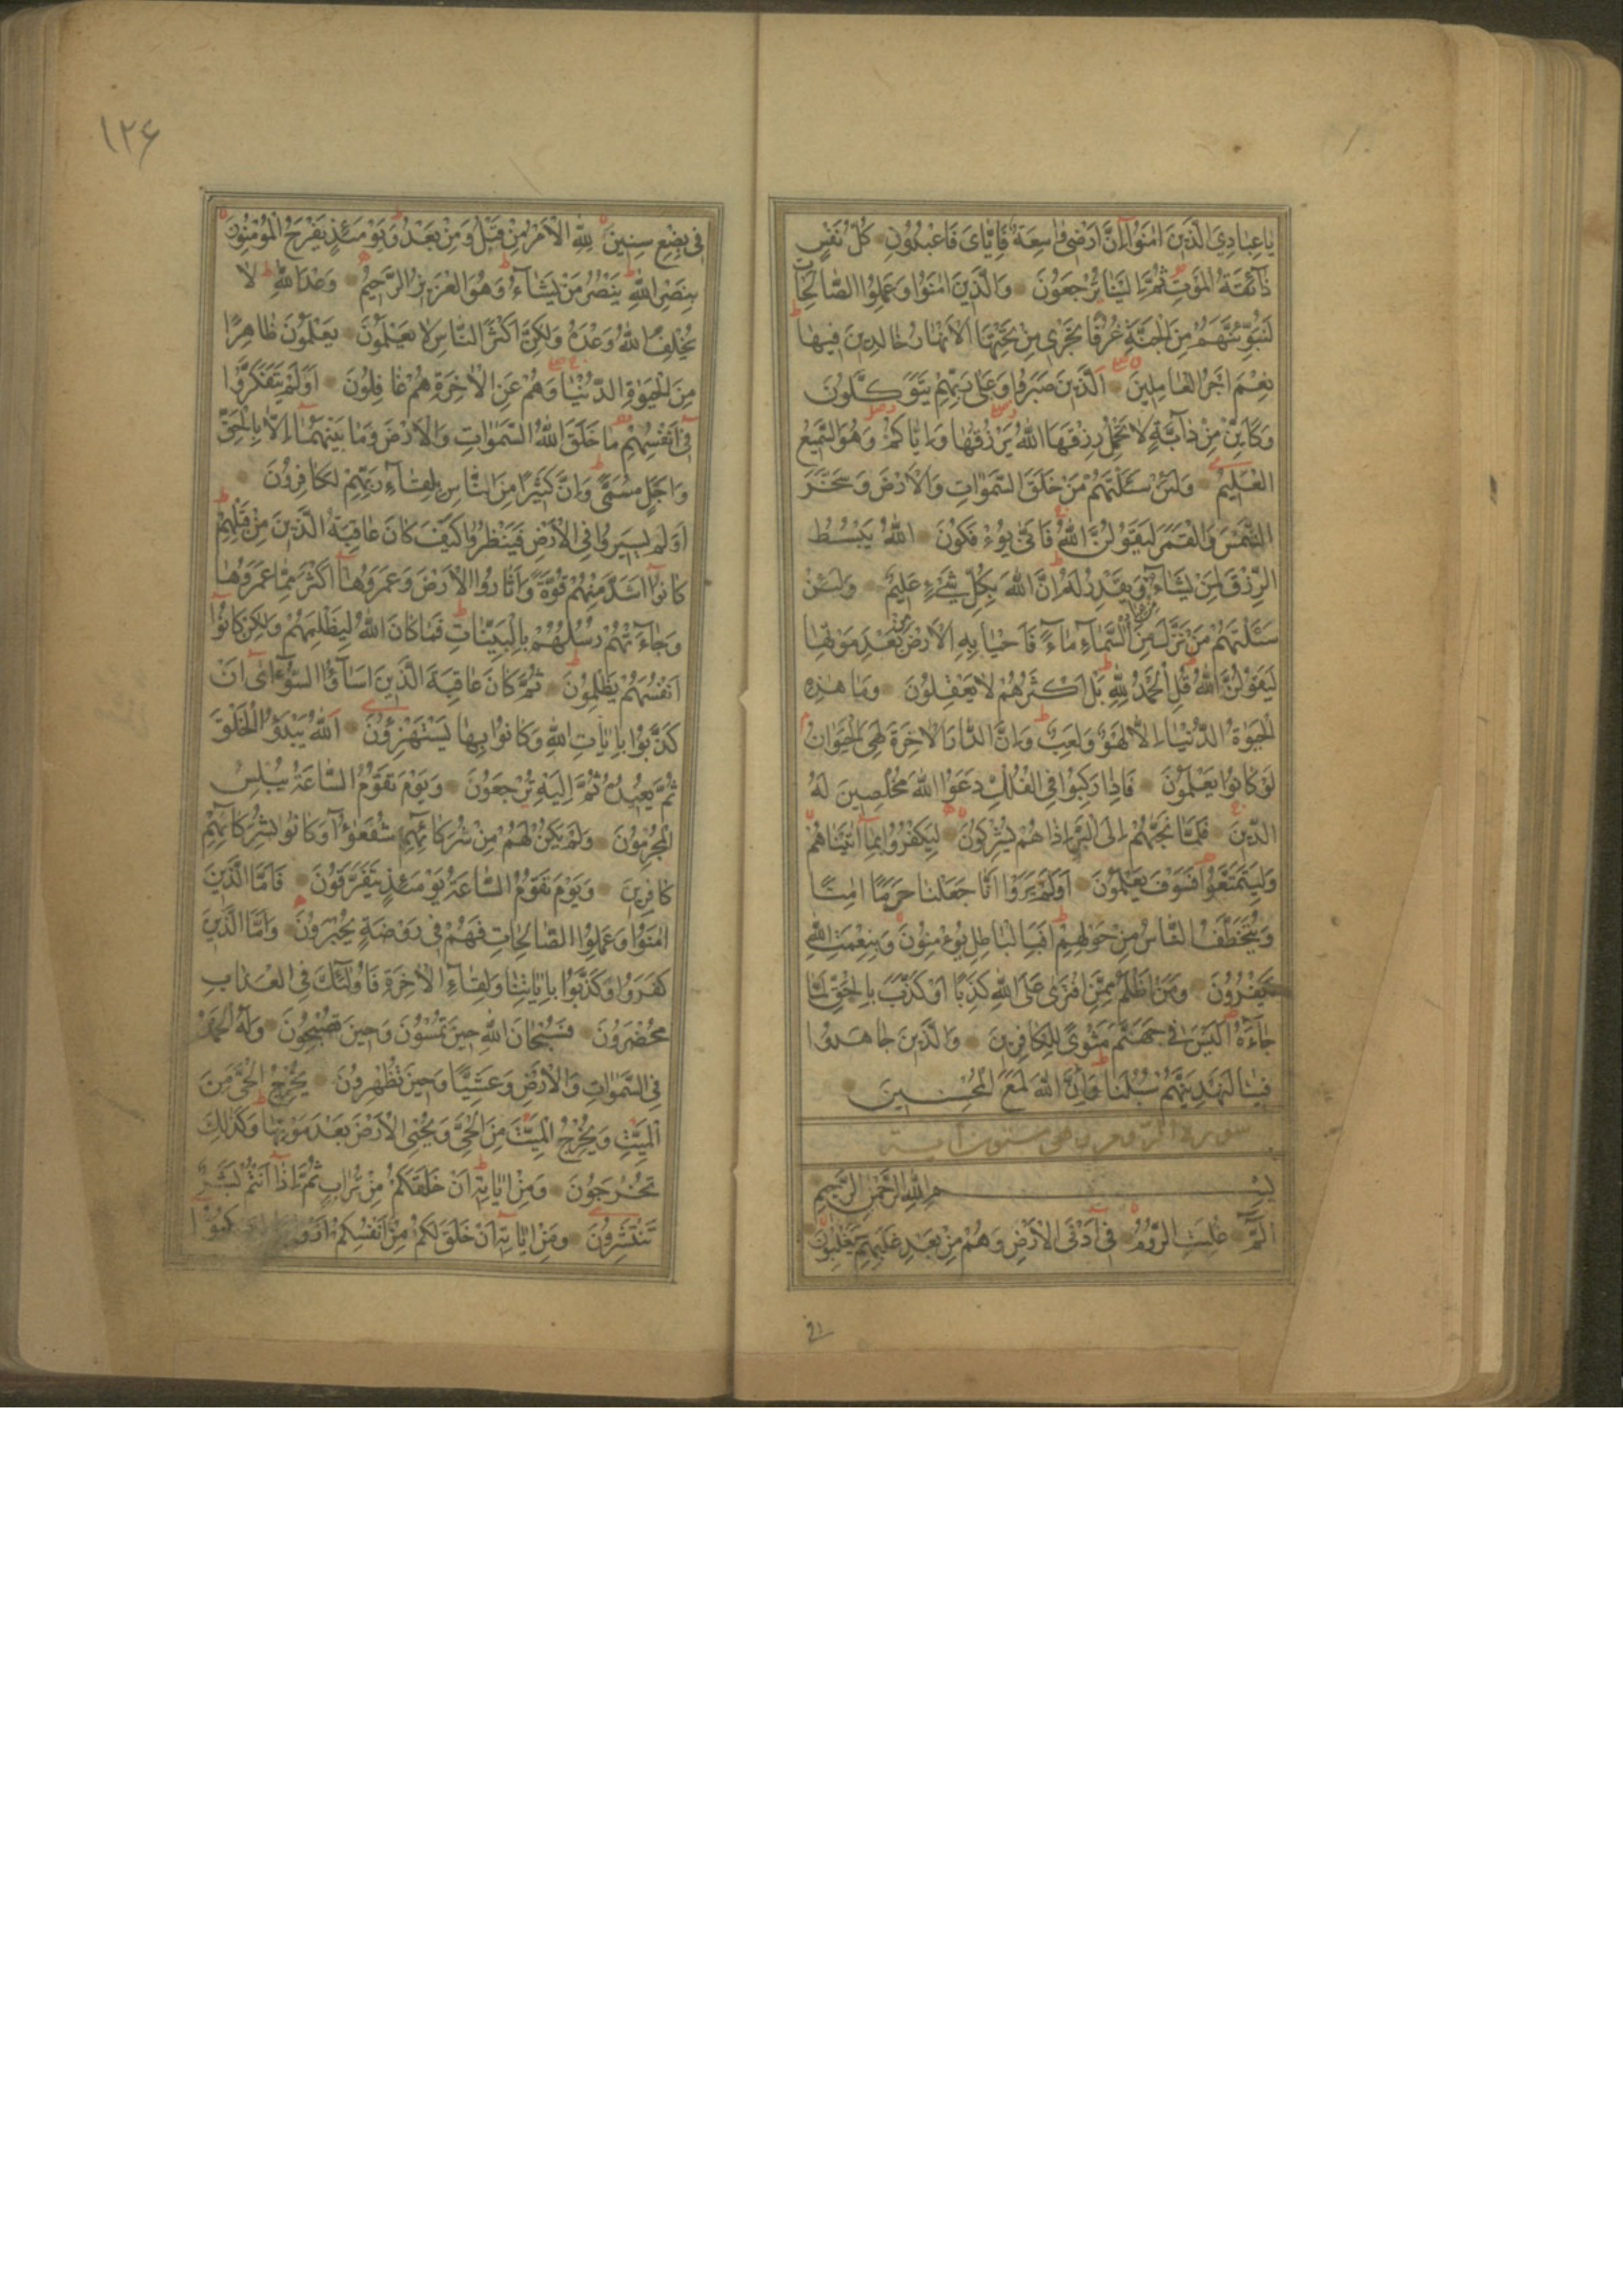 يا عِبادِيَ الَّذينَ امَنُوا اِنَّ اَرْضي واسِعَةٌ فَاِيّايَ فَاعْبُدُونِ كُلُّ نَفْسٍ
ذآئِقَةُ الْمَوْتِ ثُمَّ اِلَيْنا تُرْجَعُونَ وَالَّذينَ امَنُوا وَعَمِلُوا الصّالِحاتِ
لَنُبَوِّئَنَّهُمْ مِنَ الْجَنَّةِ غُرَفًا تَجْري مِنْ تَحْتِهَا الْاَنْهارُ خالِدينَ فيها
نِعْمَ اَجْرُ الْعامِلينَ اَلَّذينَ صَبَرُوا وَعَلى رَبِّهِمْ يَتَوَكَّلُونَ
وَكَاَيِّنْ مِنْ دآبَّةٍ لا تَحْمِلُ رِزْقَهَا اللّهُ يَرْزُقُها وَاِيّاكُمْ وَهُوَ السَّميعُ
الْعَليمُ وَلَئِنْ سَئَلْتَهُمْ مَنْ خَلَقَ السَّمواتِ وَالْاَرْضَ وَسَخَّرَ
الشَّمْسَ وَالْقَمَرَ لَيَقُولُنَّ اللّهُ فَاَنّى يُؤْفَكُونَ اَللّهُ يَبْسُطُ
الرِّزْقَ لِمَنْ يَشآءُ وَيَقْدِرُ لَهُ اِنَّ اللّهَ بِكُلِّ شَيْءٍ عَليمٌ وَلَئِنْ
سَئَلْتَهُمْ مَنْ نَزَّلَ مِنَ السَّمآءِ مآءً فَاَحْيا بِهِ الْاَرْضَ مِنْ بَعْدِ مَوْتِها
لَيَقُولُنَّ اللّهُ قُلِ الْحَمْدُ لِلّهِ بَلْ اَكْثَرُهُمْ لا يَعْقِلُونَ وَما هذِهِ
الْحَيوةُ الدُّنْيا اِلّا لَهْوٌ وَلَعِبٌ وَاِنَّ الدّارَ الْاخِرَةَ لَهِيَ الْحَيَوانُ
لَوْ كانُوا يَعْلَمُونَ فَاِذا رَكِبُوا فِي الْفُلْكِ دَعَوُا اللّهَ مُخْلِصينَ لَهُ
الدّينَ فَلَمّا نَجّيهُمْ اِلَى الْبَرِّ اِذا هُمْ يُشْرِكُونَ لِيَكْفُرُوا بِمآ اتَيْناهُمْ
وَلِيَتَمَتَّعُوا فَسَوْفَ يَعْلَمُونَ اَوَلَمْ يَرَوْا اَنّا جَعَلْنا حَرَمًا امِنًا
وَيُتَخَطَّفُ النّاسُ مِنْ حَوْلِهِمْ اَفَبِالْباطِلِ يُؤْمِنُونَ وَبِنِعْمَتِ اللّهِ
يَكْفُرُونَ وَمَنْ اَظْلَمُ مِمَّنِ افْتَرى عَلَى اللّهِ كَذِبًا اَوْ كَذَّبَ بِالْحَقِّ لَمّا
جآءَهُ اَلَيْسَ في جَهَنَّمَ مَثْوًى لِلْكافِرينَ وَالَّذينَ جاهَدُوا
فينا لَنَهْدِيَنَّهُمْ سُبُلَنا وَاِنَّ اللّهَ لَمَعَ الْمُحْسِنينَ
سورة الروم وهي ستون آية
بِسْمِ اللّهِ الرَّحْمنِ الرَّحيمِ
الم غُلِبَتِ الرُّومُ في اَدْنَى الْاَرْضِ وَهُمْ مِنْ بَعْدِ غَلَبِهِمْ سَيَغْلِبُونَ
في
١٢۶
في بِضْعِ سِنينَ لِلّهِ الْاَمْرُ مِنْ قَبْلُ وَمِنْ بَعْدُ وَيَوْمَئِذٍ يَفْرَحُ الْمُؤْمِنُونَ
بِنَصْرِ اللّهِ يَنْصُرُ مَنْ يَشآءُ وَهُوَ الْعَزيزُ الرَّحيمُ وَعْدَ اللّهِ لا
يُخْلِفُ اللّهُ وَعْدَهُ وَلكِنَّ اَكْثَرَ النّاسِ لا يَعْلَمُونَ يَعْلَمُونَ ظاهِرًا
مِنَ الْحَيوةِ الدُّنْيا وَهُمْ عَنِ الْاخِرَةِ هُمْ غافِلُونَ اَوَلَمْ يَتَفَكَّرُوا
في اَنْفُسِهِمْ ما خَلَقَ اللّهُ السَّمواتِ وَالْاَرْضَ وَما بَيْنَهُمآ اِلّا بِالْحَقِّ
وَاَجَلٍ مُسَمًّى وَاِنَّ كَثيرًا مِنَ النّاسِ بِلِقآءِ رَبِّهِمْ لَكافِرُونَ
اَوَلَمْ يَسيرُوا فِي الْاَرْضِ فَيَنْظُرُوا كَيْفَ كانَ عاقِبَةُ الَّذينَ مِنْ قَبْلِهِمْ
كانُوا اَشَدَّ مِنْهُمْ قُوَّةً وَاَثارُوا الْاَرْضَ وَعَمَرُوهآ اَكْثَرَ مِمّا عَمَرُوها
وَجآءَتْهُمْ رُسُلُهُمْ بِالْبَيِّناتِ فَما كانَ اللّهُ لِيَظْلِمَهُمْ وَلكِنْ كانُوا
اَنْفُسَهُمْ يَظْلِمُونَ ثُمَّ كانَ عاقِبَةَ الَّذينَ اَسآؤُا السُّوآى اَنْ
كَذَّبُوا بِاياتِ اللّهِ وَكانُوا بِها يَسْتَهْزِؤُنَ اَللّهُ يَبْدَؤُا الْخَلْقَ
ثُمَّ يُعيدُهُ ثُمَّ اِلَيْهِ تُرْجَعُونَ وَيَوْمَ تَقُومُ السّاعَةُ يُبْلِسُ
الْمُجْرِمُونَ وَلَمْ يَكُنْ لَهُمْ مِنْ شُرَكآئِهِمْ شُفَعؤُا وَكانُوا بِشُرَكآئِهِمْ
كافِرينَ وَيَوْمَ تَقُومُ السّاعَةُ يَوْمَئِذٍ يَتَفَرَّقُونَ فَاَمَّا الَّذينَ
امَنُوا وَعَمِلُوا الصّالِحاتِ فَهُمْ في رَوْضَةٍ يُحْبَرُونَ وَاَمَّا الَّذينَ
كَفَرُوا وَكَذَّبُوا بِاياتِنا وَلِقآءِ الْاخِرَةِ فَاُولئِكَ فِي الْعَذابِ
مُحْضَرُونَ فَسُبْحانَ اللّهِ حينَ تُمْسُونَ وَحينَ تُصْبِحُونَ وَلَهُ الْحَمْدُ
فِي السَّمواتِ وَالْاَرْضِ وَعَشِيًّا وَحينَ تُظْهِرُونَ يُخْرِجُ الْحَيَّ مِنَ
الْمَيِّتِ وَيُخْرِجُ الْمَيِّتَ مِنَ الْحَيِّ وَيُحْيِي الْاَرْضَ بَعْدَ مَوْتِها وَكَذلِكَ
تُخْرَجُونَ وَمِنْ اياتِهِ اَنْ خَلَقَكُمْ مِنْ تُرابٍ ثُمَّ اِذا اَنْتُمْ بَشَرٌ
تَنْتَشِرُونَ وَمِنْ اياتِهِ اَنْ خَلَقَ لَكُمْ مِنْ اَنْفُسِكُمْ